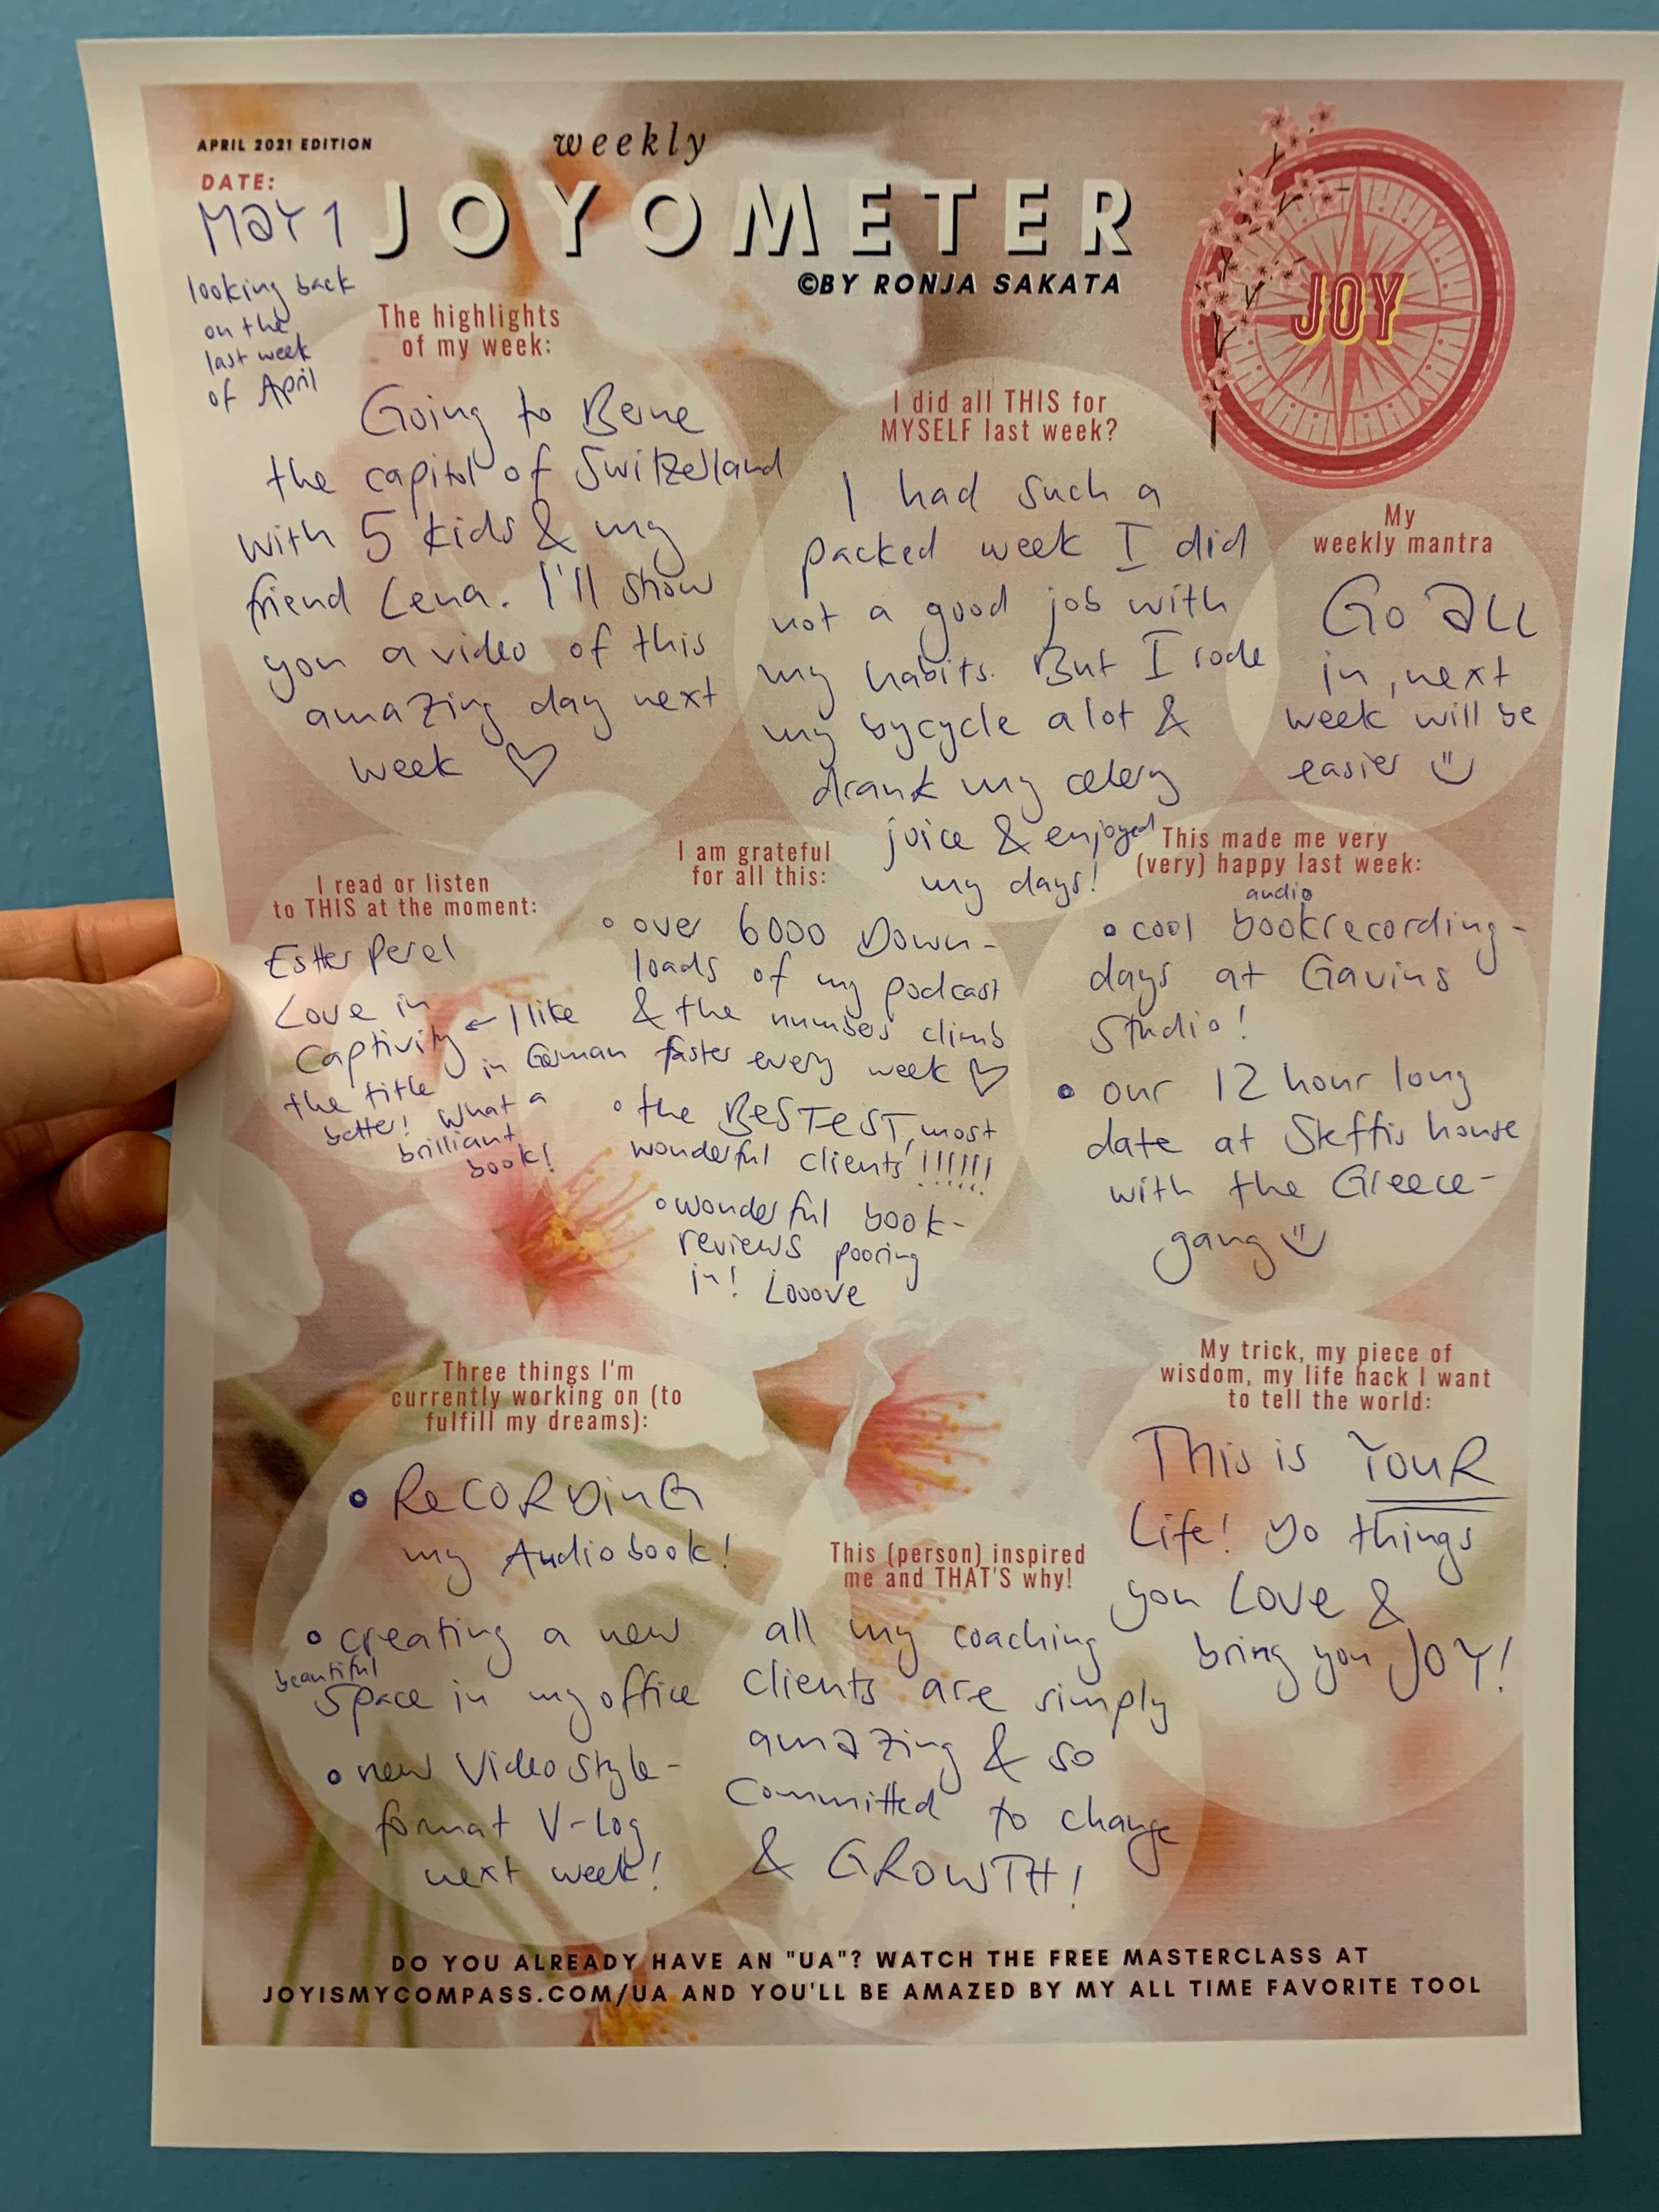 APRIL 2021 EDITION
weekly
DATE:
MAY 1
JOYOMETER
©BY RONJA SAKATA
JOY
looking back
on the
last week
of April
The highlights
of my week:
Going to Berne
the capitol of Switzerland
with 5 kids & my
friend Lena. I'll show
you a video of this
amazing day next
week ♡
I did all THIS for
MYSELF last week?
I had such a
packed week I did
not a good job with
my habits. But I rode
my bycycle a lot &
drank my celery
juice & enjoyed
my days!
My
weekly mantra
Go all
in, next
week will be
easier :)
I read or listen
to THIS at the moment:
Esther Perel
Love in
Captivity ← I like
the title in German
better! What a
brilliant
book!
I am grateful
for all this:
• over 6000 Down-
loads of my podcast
& the numbers climb
faster every week ♡
• the BESTEST, most
wonderful clients!!!!!!
• wonderful book-
reviews pooring
in! Looove
This made me very
(very) happy last week:
audio
• cool bookrecording-
days at Gavins
Studio!
• our 12 hour long
date at Steffis house
with the Greece-
gang :)
Three things I'm
currently working on (to
fulfill my dreams):
• RECORDING
my Audiobook!
• creating a new
beautiful
space in my office
• new Videostyle-
format V-log
next week!
This (person) inspired
me and THAT'S why!
all my coaching
clients are simply
amazing & so
committed to change
& GROWTH!
My trick, my piece of
wisdom, my life hack I want
to tell the world:
This is YOUR
Life! Do things
you Love &
bring you JOY!
DO YOU ALREADY HAVE AN "UA"? WATCH THE FREE MASTERCLASS AT
JOYISMYCOMPASS.COM/UA AND YOU'LL BE AMAZED BY MY ALL TIME FAVORITE TOOL